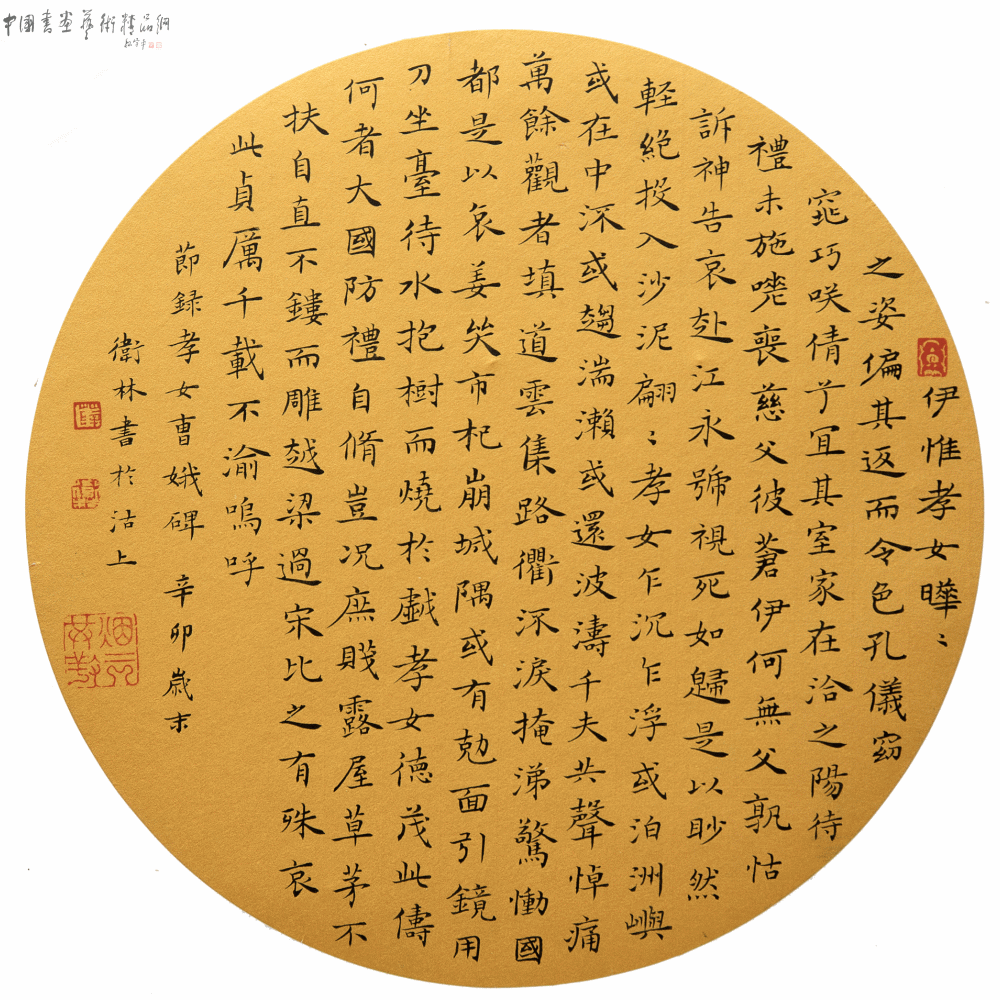 中國書画藝術精品網
伊惟孝女曄〻
之姿偏其返而令色孔儀窈
窕巧咲倩兮冝其室家在洽之陽待
禮未施嗟喪慈父彼蒼伊何無父孰怙
訴神告哀赴江永號視死如歸是以眇然
軽絕投入沙泥翩〻孝女乍沉乍浮或泊洲嶼
或在中流或趨湍瀨或還波濤千夫共聲悼痛
萬餘觀者填道雲集路衢流淚掩涕驚慟國
都是以哀姜哭市杞崩城隅或有勊面引鏡用
刀坐臺待水抱樹而燒於戱孝女德茂此儔
何者大國防禮自脩豈況庶賤露屋草茅不
扶自直不鏤而雕越梁過宋比之有殊哀
此貞厲千載不渝嗚呼
節録孝女曹娥碑 辛卯歲末
衛林書於沽上